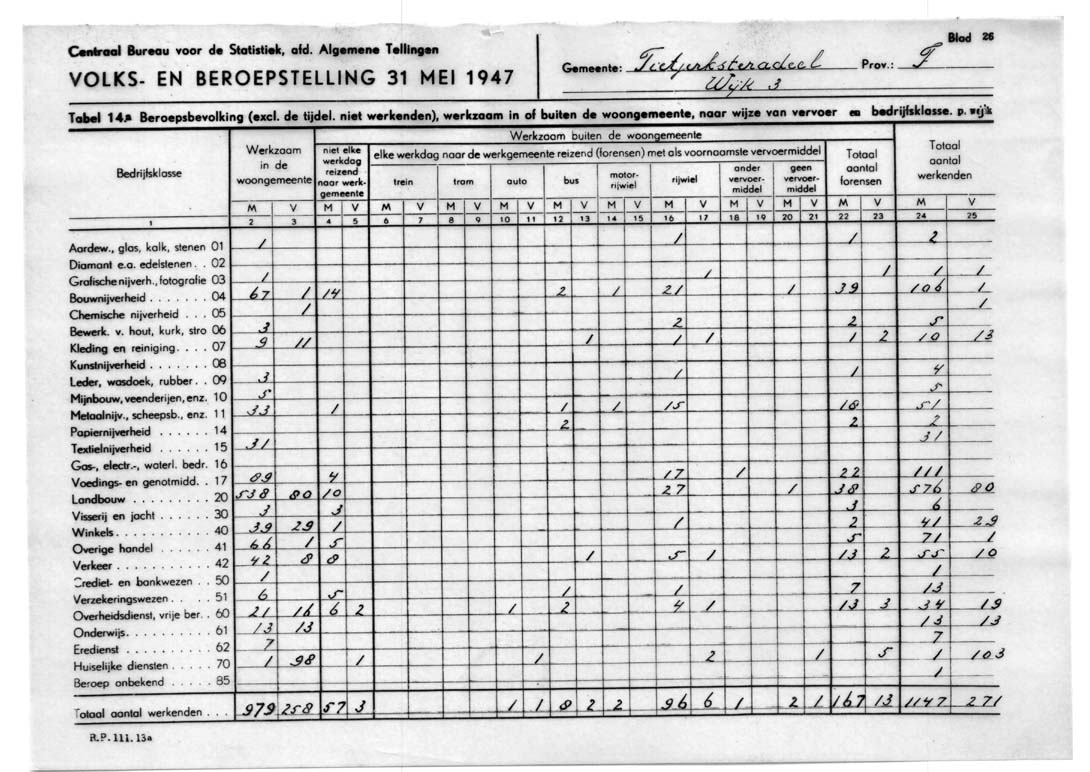 Blad 26
Centraal Bureau voor de Statistiek, afd. Algemene Tellingen
VOLKS- EN BEROEPSTELLING 31 MEI 1947
Gemeente: Tietjerksteradeel Prov.: F
Wijk 3
Tabel 14a Beroepsbevolking (excl. de tijdel. niet werkenden), werkzaam in of buiten de woongemeente, naar wijze van vervoer en bedrijfsklasse. p. wijk
Bedrijfsklasse
Werkzaam in de woongemeente
Werkzaam buiten de woongemeente
niet elke werkdag reizend naar werkgemeente
elke werkdag naar de werkgemeente reizend (forensen) met als voornaamste vervoermiddel
trein tram auto bus motor-rijwiel rijwiel ander vervoermiddel geen vervoermiddel
Totaal aantal forensen
Totaal aantal werkenden
M V M V M V M V M V M V M V M V M V M V M V M V
1 2 3 4 5 6 7 8 9 10 11 12 13 14 15 16 17 18 19 20 21 22 23 24 25
Aardew., glas, kalk, stenen 01 1 1 1 2
Diamant e.a. edelstenen . . 02
Grafische nijverh., fotografie 03 1 1 1 1 1
Bouwnijverheid . . . . . . 04 67 1 14 2 1 21 1 39 106 1
Chemische nijverheid . . . 05 1 1
Bewerk. v. hout, kurk, stro 06 3 2 2 5
Kleding en reiniging. . . . 07 9 11 1 1 1 1 2 10 13
Kunstnijverheid . . . . . . 08
Leder, wasdoek, rubber . . 09 3 1 1 4
Mijnbouw, veenderijen, enz. 10 5 5
Metaalnijv., scheepsb., enz. 11 33 1 1 1 15 18 51
Papiernijverheid . . . . . . 14 2 2 2
Textielnijverheid . . . . . 15 31 31
Gas-, electr.-, waterl. bedr. 16
Voedings- en genotmidd. . 17 89 4 17 1 22 111
Landbouw . . . . . . . . 20 538 80 10 27 1 38 576 80
Visserij en jacht . . . . . 30 3 3 3 6
Winkels. . . . . . . . . . 40 39 29 1 1 2 41 29
Overige handel . . . . . . 41 66 1 5 5 71 1
Verkeer . . . . . . . . . 42 42 8 8 1 5 1 13 2 55 10
Crediet- en bankwezen . . 50 1 1
Verzekeringswezen. . . . . 51 6 5 1 1 7 13
Overheidsdienst, vrije ber. . 60 21 16 6 2 1 2 4 1 13 3 34 19
Onderwijs. . . . . . . . . 61 13 13 13 13
Eredienst . . . . . . . . 62 7 7
Huiselijke diensten . . . . . 70 1 98 1 1 2 1 5 1 103
Beroep onbekend . . . . . 85 1
Totaal aantal werkenden . . . 979 258 57 3 1 1 8 2 2 96 6 1 2 1 167 13 1147 271
R.P. 111. 13a